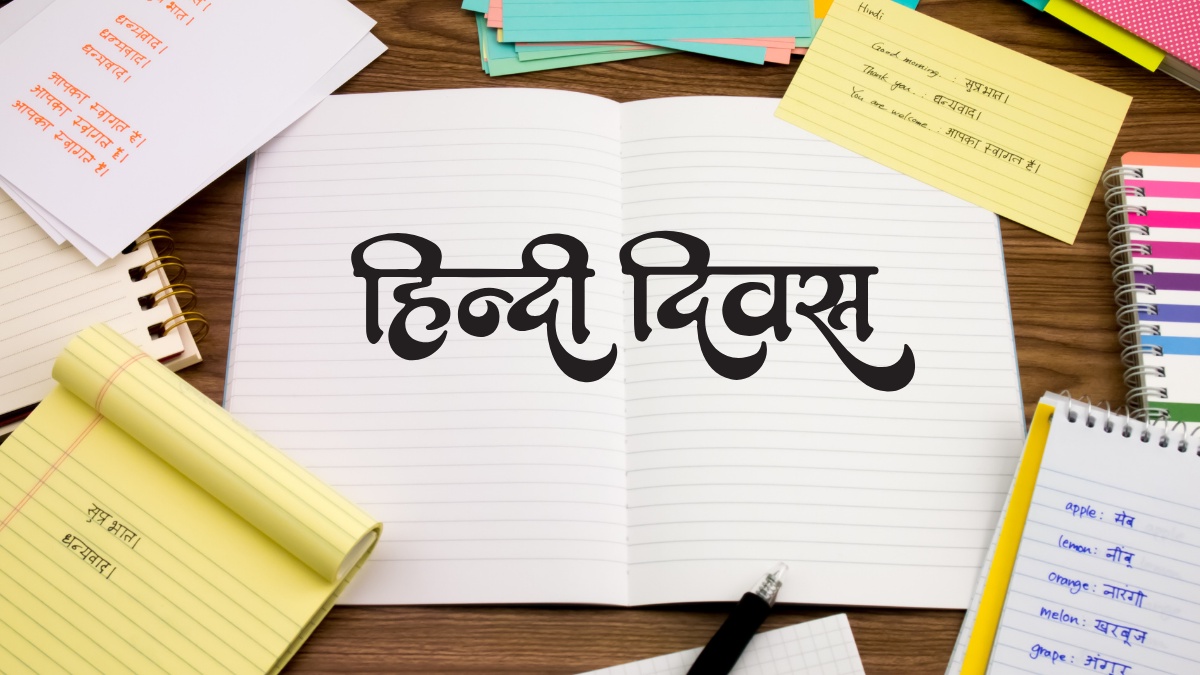 धन्यवाद।
धन्यवाद।
धन्यवाद।
आपका स्वागत है।
आपका स्वागत है।
आपका स्वागत है।
Hindi
Good morning. : सुप्रभात।
Thank you. : धन्यवाद।
You are welcome. : आपका स्वागत है।
हिन्दी दिवस
सुप्रभात।
धन्यवाद।
apple: सेब
lemon: नींबू
orange: नारंगी
melon: खरबूज
grape: अंगूर